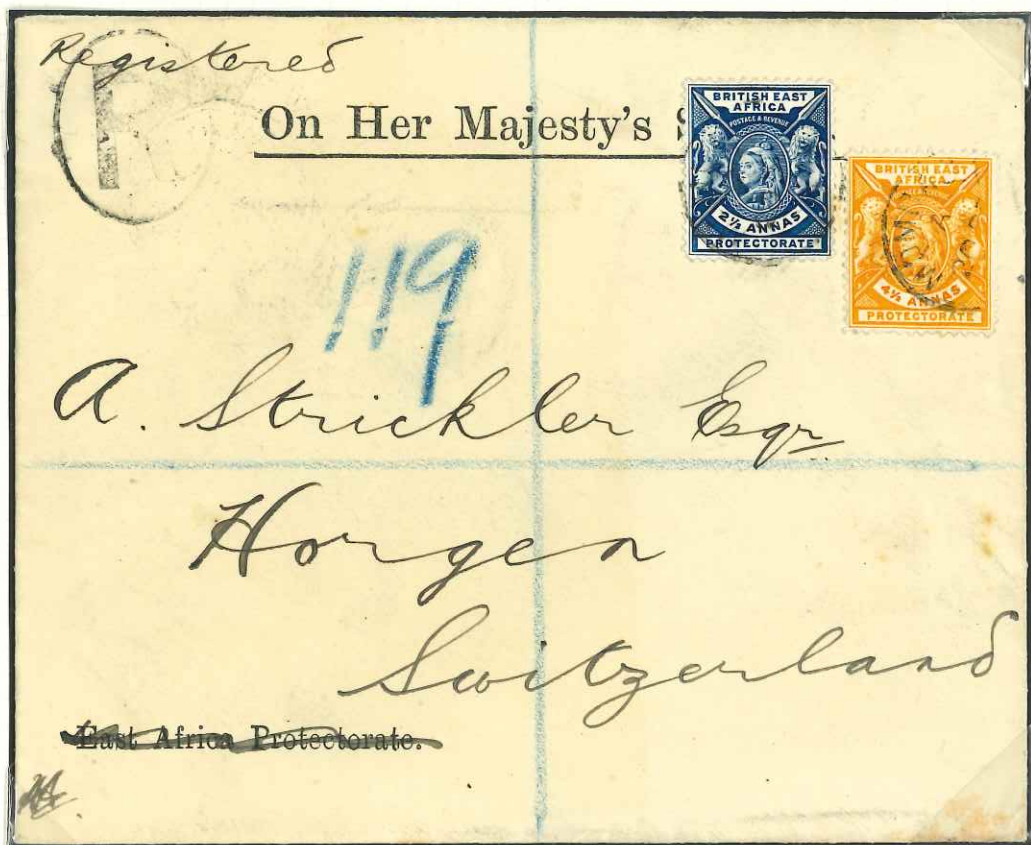 Registered
R
On Her Majesty's
BRITISH EAST
AFRICA
POSTAGE & REVENUE
2½ ANNAS
PROTECTORATE
BRITISH EAST
AFRICA
4½ ANNAS
PROTECTORATE
119
A. Strickler Esqr
Horgen
Switzerland
East Africa Protectorate.